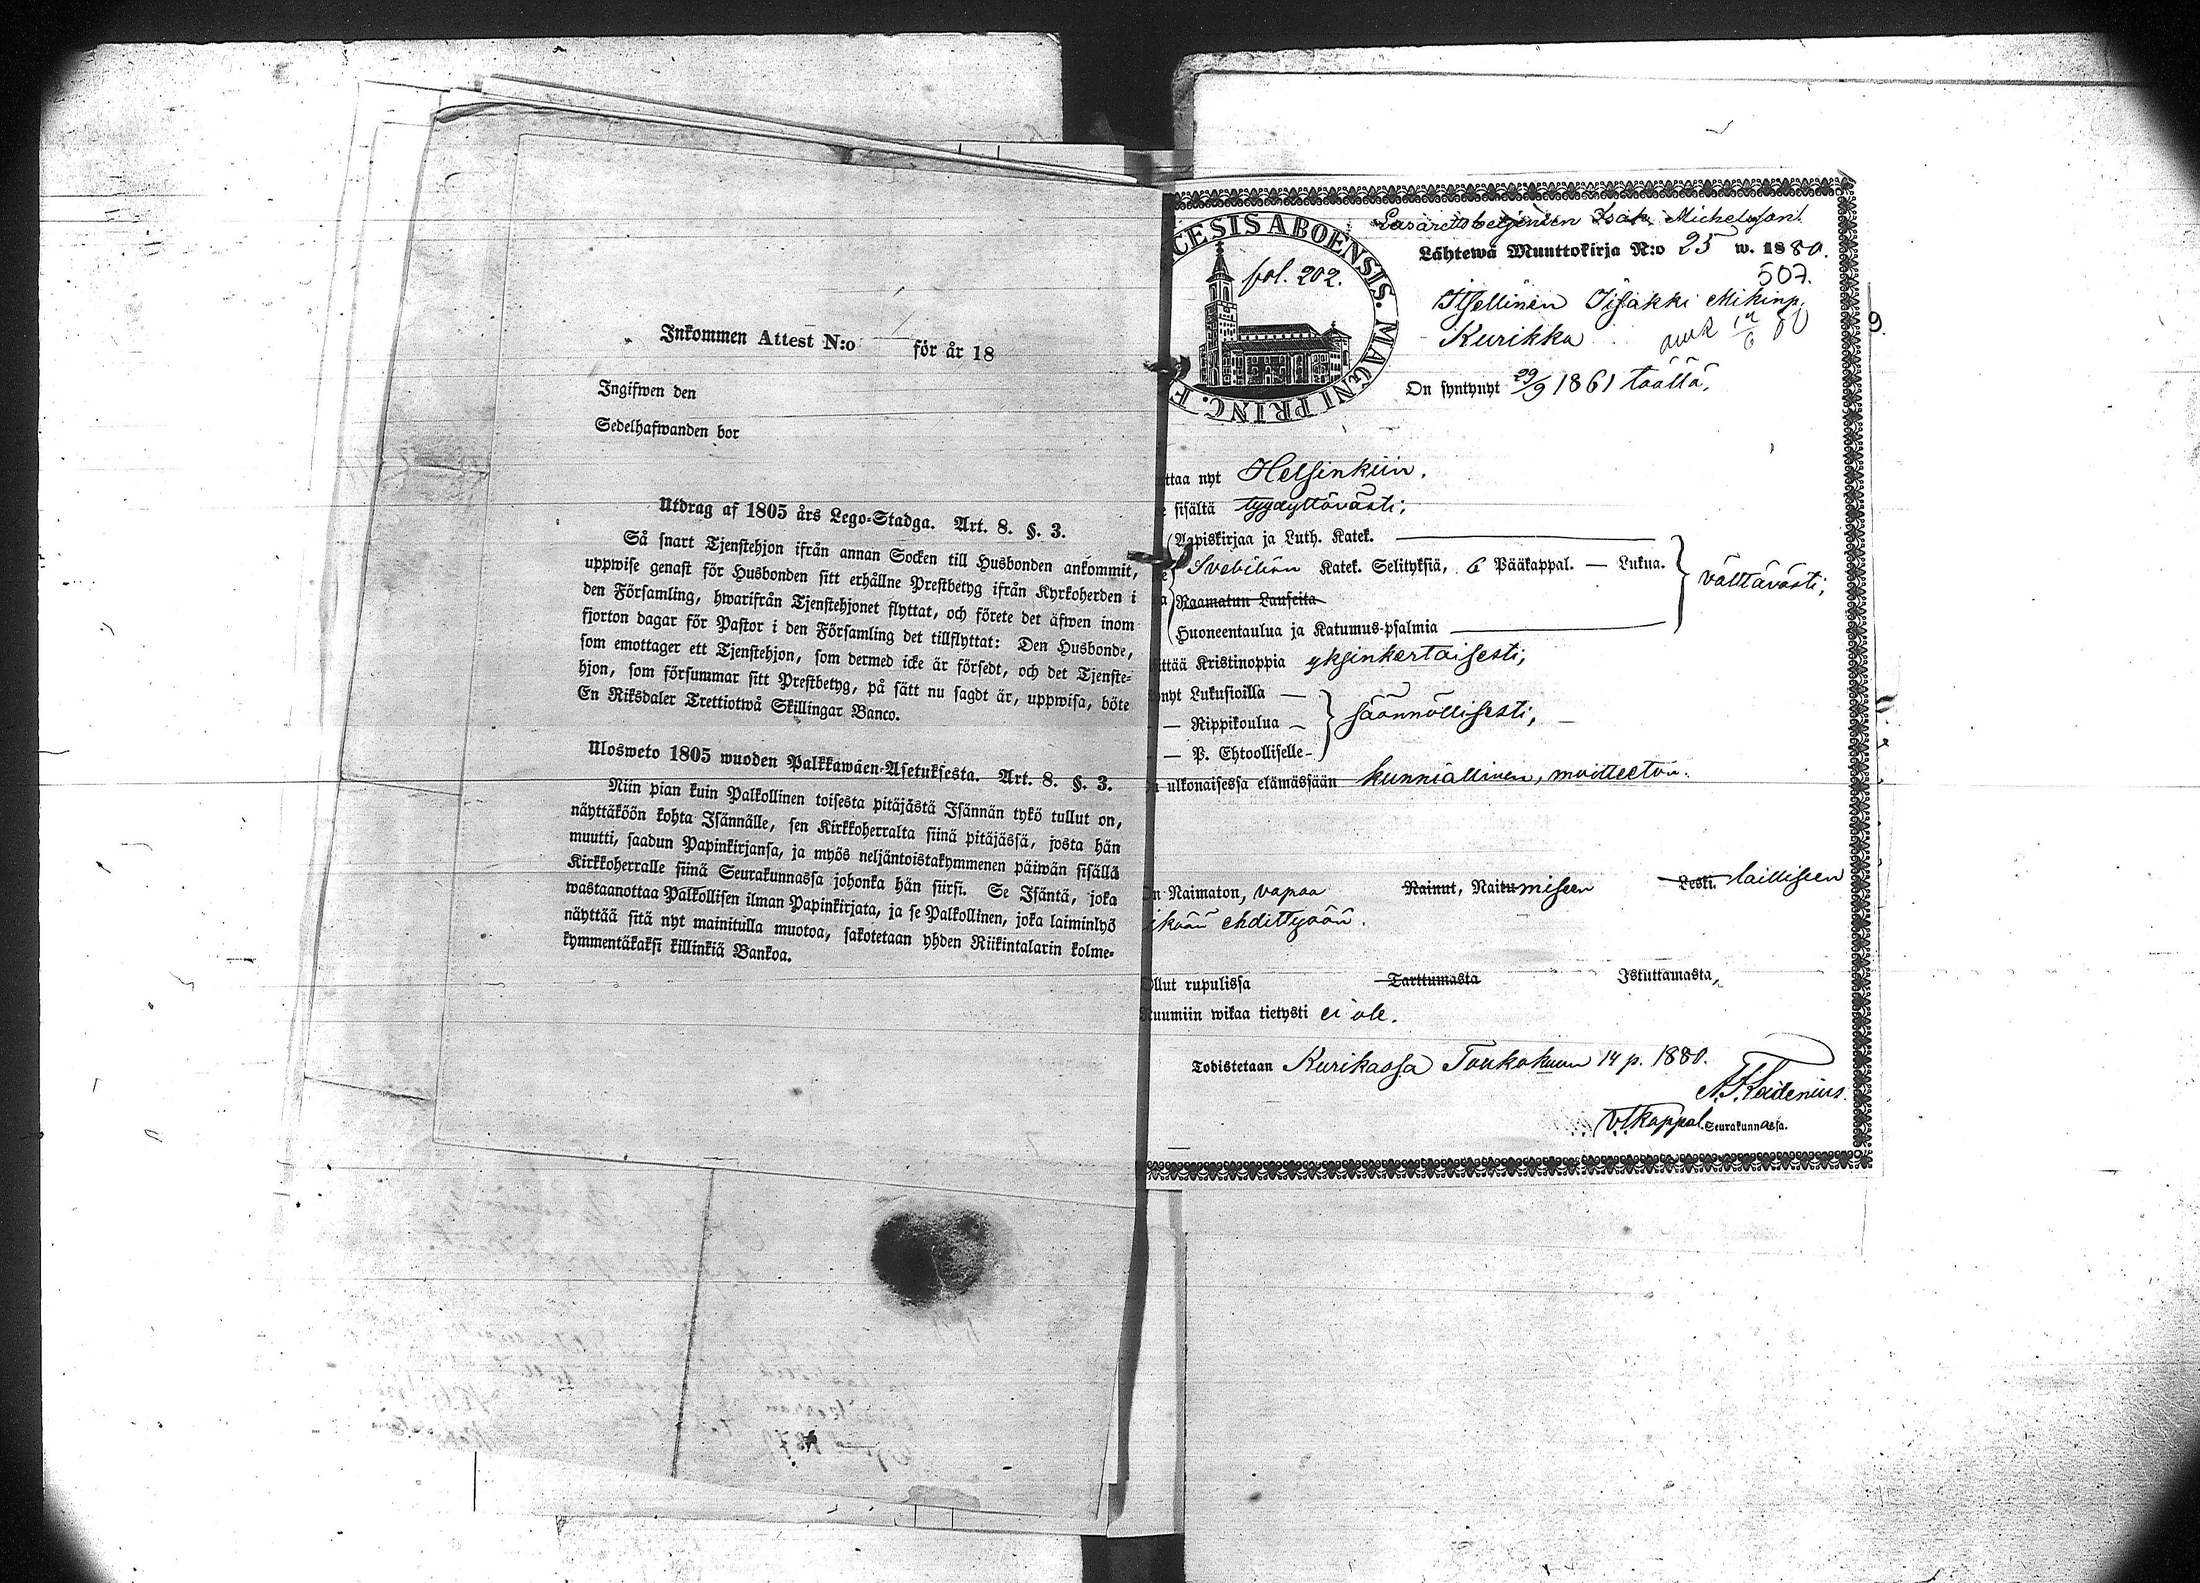 Inkommen Attest N:o för år 18
Ingifwen den
Sedelhafwanden bor
Utdrag af 1805 års Lego-Stadga. Art. 8. §. 3.
Så snart Tjenstehjon ifrån annan Socken till Husbonden ankommit,
uppwise genast för Husbonden sitt erhållne Prestbetyg ifrån Kyrkoherden i
den Församling, hwarifrån Tjenstehjonet flyttat, och förete det äfwen inom
fjorton dagar för Pastor i den Församling det tillflyttat: Den Husbonde,
som emottager ett Tjenstehjon, som dermed icke är försedt, och det Tjenste-
hjon, som försummar sitt Prestbetyg, på sätt nu sagdt är, uppwisa, böte
En Riksdaler Trettiotwå Skillingar Banco.
Ulosweto 1805 wuoden Palkkawäen-Asetuksesta. Art. 8. §. 3.
Niin pian kuin Palkollinen toisesta pitäjästä Isännän tykö tullut on,
näyttäköön kohta Isännälle, sen Kirkkoherralta siinä pitäjässä, josta hän
muutti, saadun Papinkirjansa, ja myös neljäntoistakymmenen päiwän sisällä
Kirkkoherralle siinä Seurakunnassa johonka hän siirsi. Se Isäntä, joka
wastaanottaa Palkollisen ilman Papinkirjata, ja se Palkollinen, joka laiminlyö
näyttää sitä nyt mainitulla muotoa, sakotetaan yhden Riikintalarin kolme-
kymmentäkaksi killinkiä Bankoa.
CESIS ABOENSIS. MAGNI PRINC. F
fol. 202.
Lasarettsbetjenten Isak Michelsson.
Lähtewä Muuttokirja N:o 25 w. 1880.
507.
Itsellinen Iisakki Mikinp.
Kurikka
9.
On syntynyt 29/9 1861 täällä,
ttaa nyt Helsinkiin.
sisältä tyydyttävästi;
Aapiskirjaa ja Luth. Katek.
Svebiliön Katek. Selityksiä, 6 Pääkappal. — Lukua. välttävästi;
Raamatun Lauseita
Huoneentaulua ja Katumus-psalmia
ittää Kristinoppia yksinkertaisesti,
ynyt Lukusioilla —
— Rippikoulua — säännöllisesti,
— P. Ehtoolliselle-
ulkonaisessa elämässään kunniallinen, moitteeton.
n Naimaton, vapaa Nainut, Naitumiseen Leski. lailliseen
ikään ehdittyään.
llut rupulissa Tarttumasta Istuttamasta,
uumiin wikaa tietysti ei ole.
Todistetaan Kurikassa Toukokuun 14 p. 1880.
Vt kappal. Seurakunnassa.